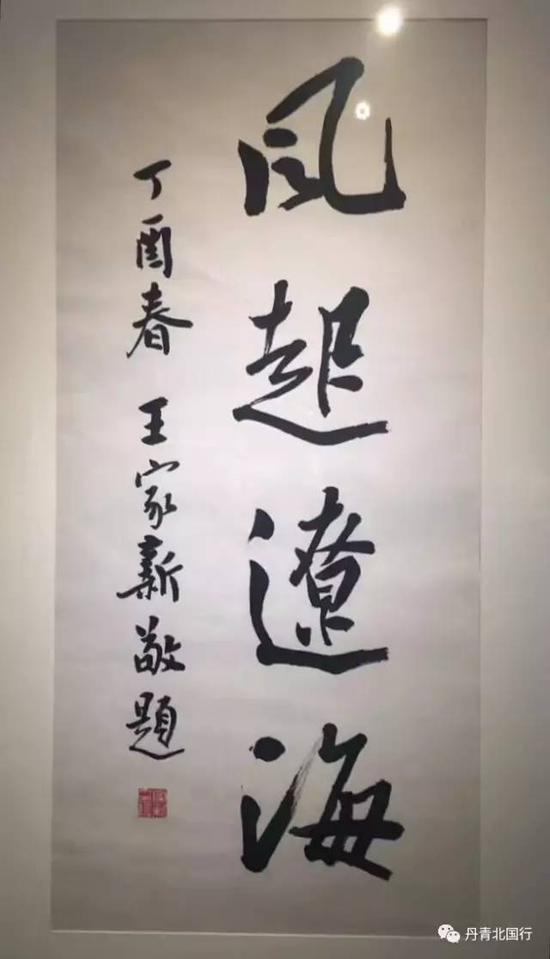 风起辽海
丁酉春 王家新敬题
丹青北国行